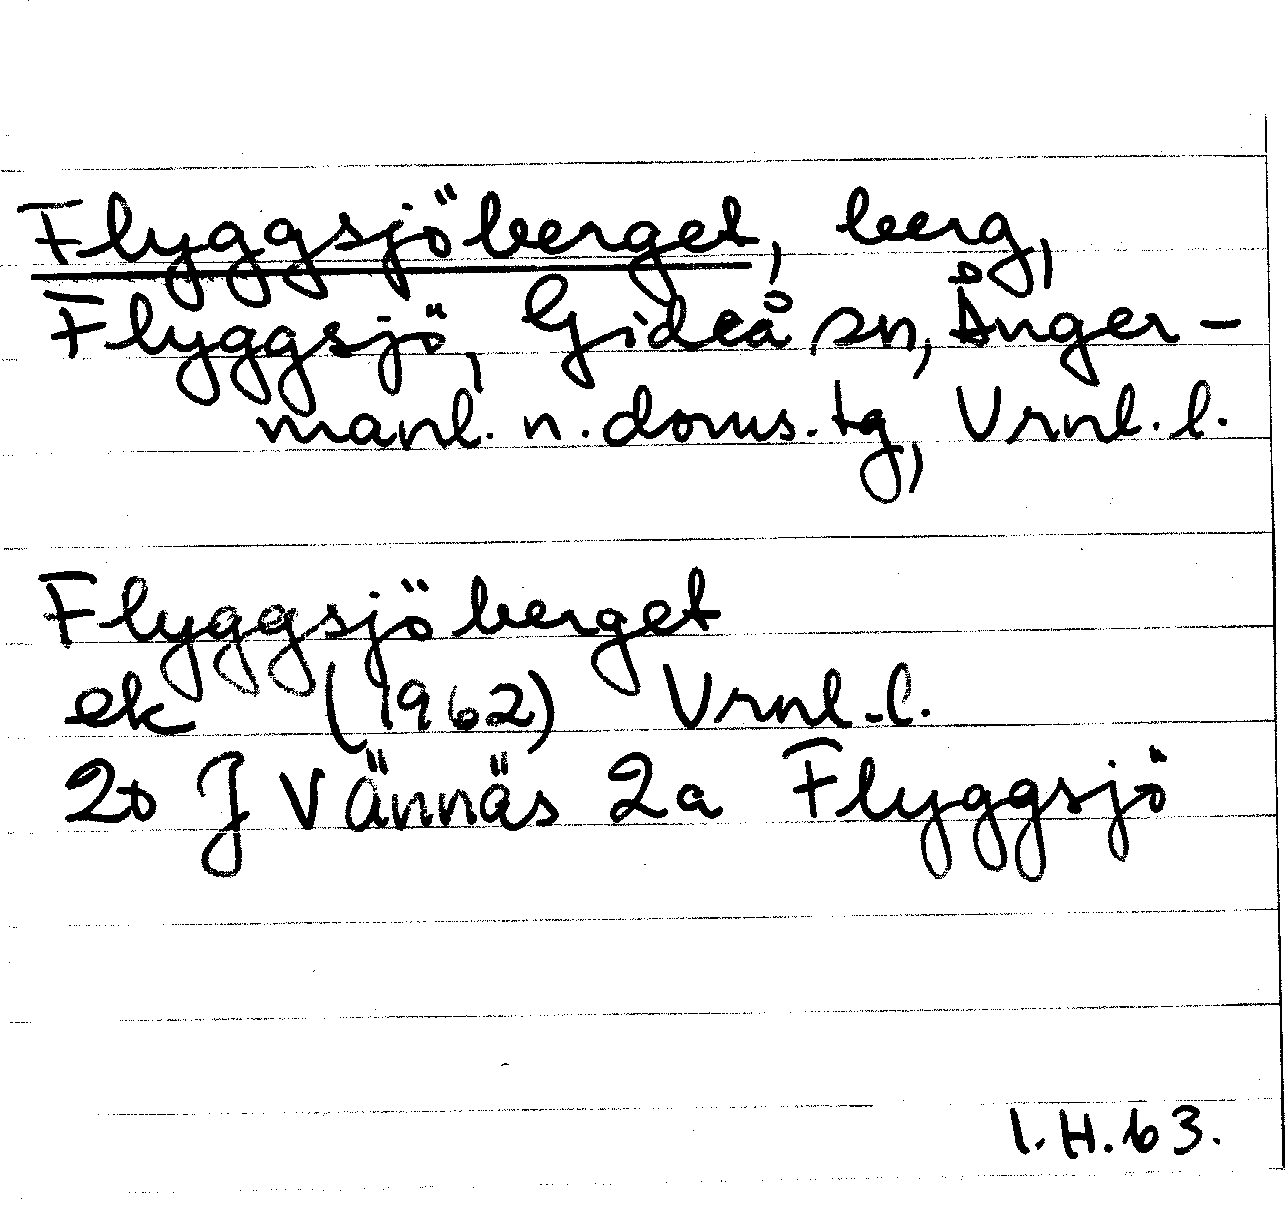 Flyggsjöberget, berg,
Flyggsjö, Gideå sn, Ånger-
manl. n. doms. tg, Vrnl. l.
Flyggsjöberget
ek (1962) Vrnl. l.
20 J Vännäs 2a Flyggsjö
I. H. 63.